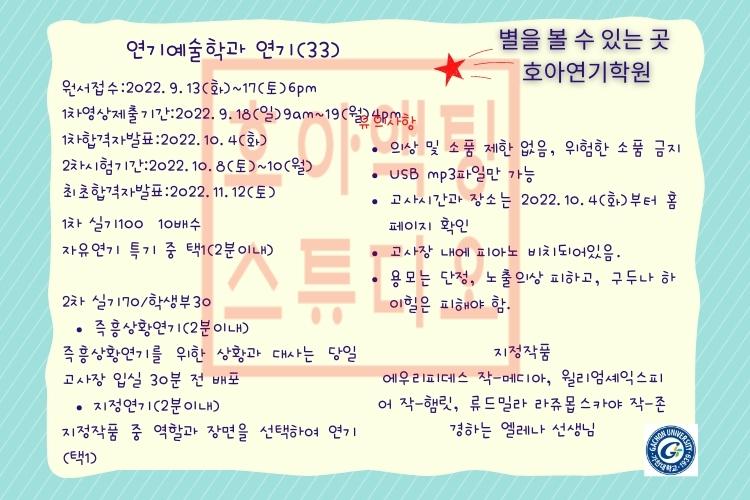 연기예술학과 연기(33)
별을 볼 수 있는 곳
호아연기학원
원서접수:2022. 9. 13(화)~17(토)6pm
1차영상제출기간:2022. 9. 18(일)9am~19(월)4pm
1차합격자발표:2022. 10. 4(화)
2차시험기간:2022. 10. 8(토)~10(월)
최초합격자발표:2022. 11. 12(토)
1차 실기100 10배수
자유연기 특기 중 택1(2분이내)
2차 실기70/학생부30
• 즉흥상황연기(2분이내)
즉흥상황연기를 위한 상황과 대사는 당일
고사장 입실 30분 전 배포
• 지정연기(2분이내)
지정작품 중 역할과 장면을 선택하여 연기
(택1)
유의사항
• 의상 및 소품 제한 없음, 위험한 소품 금지
• USB mp3파일만 가능
• 고사시간과 장소는 2022. 10. 4(화)부터 홈
페이지 확인
• 고사장 내에 피아노 비치되어있음.
• 용모는 단정, 노출의상 피하고, 구두나 하
이힐은 피해야 함.
지정작품
에우리피데스 작-메디아, 윌리엄셰익스피
어 작-햄릿, 류드밀라 라쥬몹스카야 작-존
경하는 엘레나 선생님
호아액팅
스튜디오
GACHON UNIVERSITY
가천대학교·1939